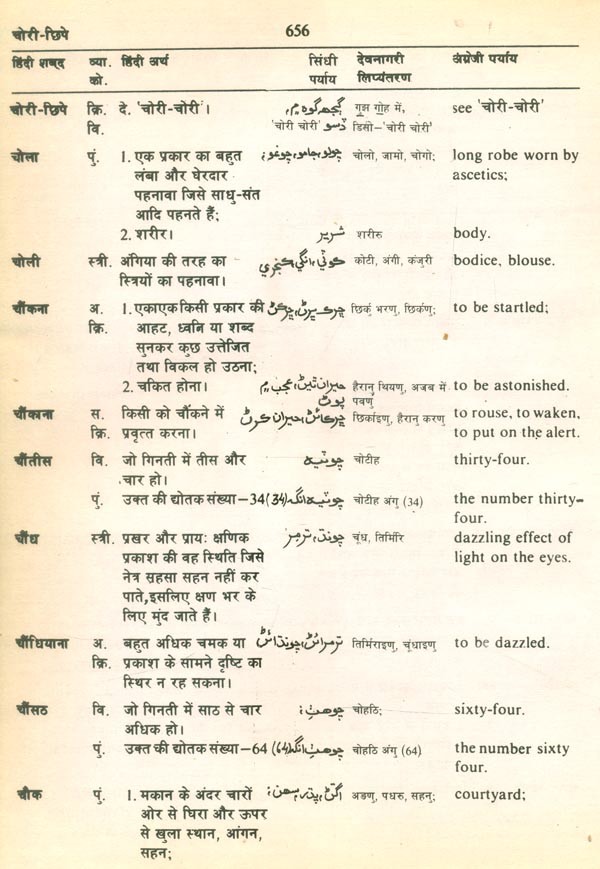 चोरी-छिपे 656
हिंदी शब्द व्या. को. हिंदी अर्थ सिंधी पर्याय देवनागरी लिप्यंतरण अंग्रेजी पर्याय
चोरी-छिपे क्रि. दे. 'चोरी-चोरी'। ڳجهه ڳوهه ۾، गुझ गोह में, see 'चोरी-चोरी'
वि. 'चोरी चोरी' ڏسو डिसो-'चोरी चोरी'
चोला पुं. 1. एक प्रकार का बहुत چولو، جامو، چوغو؛ चोलो, जामो, चोगो; long robe worn by
लंबा और घेरदार ascetics;
पहनावा जिसे साधु-संत
आदि पहनते हैं;
2. शरीर। شرير शरीरु body.
चोली स्त्री. अंगिया की तरह का ڪوٽي، انگي، ڪنجري कोटी, अंगी, कंजुरी bodice, blouse.
स्त्रियों का पहनावा।
चौंकना अ. 1. एकाएक किसी प्रकार की ڇرڪ ڀرڻ، ڇرڪڻ छिर्कु भरणु, छिर्कणु; to be startled;
क्रि. आहट, ध्वनि या शब्द
सुनकर कुछ उत्तेजित
तथा विकल हो उठना;
2. चकित होना। حيران ٿيڻ، عجب ۾ हैरानु थियणु, अजब में to be astonished.
پوڻ पवणु
चौंकाना स. किसी को चौंकने में ڇرڪائڻ، حيران ڪرڻ छिर्काइणु, हैरानु करणु to rouse, to waken,
क्रि. प्रवृत्त करना। to put on the alert.
चौंतीस वि. जो गिनती में तीस और چوٽيهه चोटीह thirty-four.
चार हो।
पुं. उक्त की द्योतक संख्या-34 چوٽيهه انگ (34) चोटीह अंगु (34) the number thirty-
four.
चौंध स्त्री. प्रखर और प्रायः क्षणिक چونڌ، ترمر चूंध, तिर्मिरि dazzling effect of
प्रकाश की वह स्थिति जिसे light on the eyes.
नेत्र सहसा सहन नहीं कर
पाते,इसलिए क्षण भर के
लिए मुंद जाते हैं।
चौंधियाना अ. बहुत अधिक चमक या ترمرائڻ، چونڌائڻ तिर्मिराइणु, चूंधाइणु to be dazzled.
क्रि. प्रकाश के सामने दृष्टि का
स्थिर न रह सकना।
चौंसठ वि. जो गिनती में साठ से चार چوهٺ؛ चोहठि; sixty-four.
अधिक हो।
पुं. उक्त की द्योतक संख्या-64 چوهٺ انگ (64) चोहठि अंगु (64) the number sixty
four.
चौक पुं. 1. मकान के अंदर चारों اڱڻ، پڌر، صحن؛ अङणु, पधरु, सहनु; courtyard;
ओर से घिरा और ऊपर
से खुला स्थान, आंगन,
सहन;